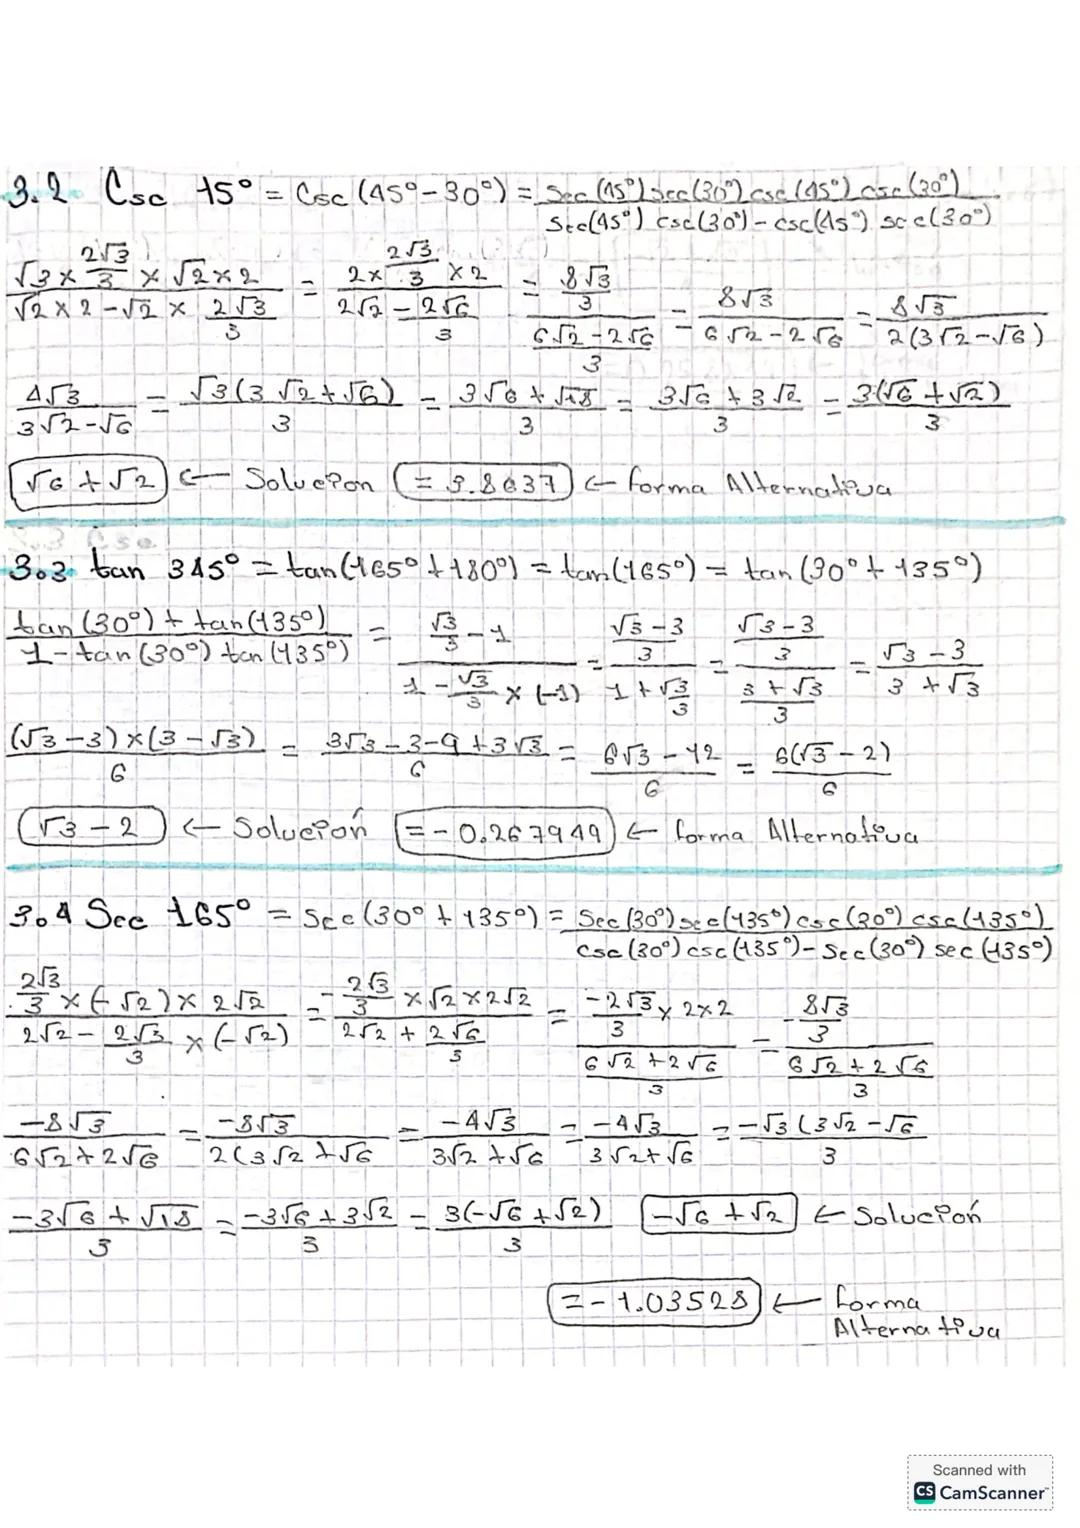 3.2 Csc 15° = Csc (45°-30°) = Sec (45°) sec(30°) csc (45°) csc (30°) / Sec(45°) csc(30°) - csc(45°) sec(30°)
√3 × 2√3/3 × √2 × 2 / √2 × 2 - √2 × 2√3/3 = 2 × 2√3/3 × 2 / 2√2 - 2√6/3 = 8√3/3 / 6√2 - 2√6/3 = 8√3 / 6√2 - 2√6 = 8√3 / 2(3√2 - √6)
4√3 / 3√2 - √6 = √3(3√2 + √6) / 3 = 3√6 + √18 / 3 = 3√6 + 3√2 / 3 = 3(√6 + √2) / 3
√6 + √2 ← Solucion = 3.8637 ← forma Alternativa
3.3 tan 345° = tan(165° + 180°) = tan(165°) = tan (30° + 135°)
tan (30°) + tan(135°) / 1 - tan (30°) tan (135°) = √3/3 - 1 / 1 - √3/3 × (-1) = √3 - 3/3 / 1 + √3/3 = √3 - 3/3 / 3 + √3/3 = √3 - 3 / 3 + √3
(√3 - 3) × (3 - √3) / 6 = 3√3 - 3 - 9 + 3√3 / 6 = 6√3 - 12 / 6 = 6(√3 - 2) / 6
√3 - 2 ← Solución = -0.267949 ← forma Alternativa
3.4 Sec 165° = Sec (30° + 135°) = Sec (30°) sec (135°) csc (30°) csc (135°) / csc (30°) csc (135°) - Sec (30°) sec (135°)
2√3/3 × (-√2) × 2√2 / 2√2 - 2√3/3 × (-√2) = -2√3/3 × √2 × 2√2 / 2√2 + 2√6/3 = -2√3/3 × 2×2 / 6√2 + 2√6/3 = -8√3/3 / 6√2 + 2√6/3
-8√3 / 6√2 + 2√6 = -8√3 / 2(3√2 + √6 = -4√3 / 3√2 + √6 = -4√3 / 3√2 + √6 = -√3 (3√2 - √6 / 3
-3√6 + √18 / 3 = -3√6 + 3√2 / 3 = 3(-√6 + √2) / 3 -√6 + √2 ← Solución
= -1.03528 ← forma
Alternativa
Scanned with
CS CamScanner